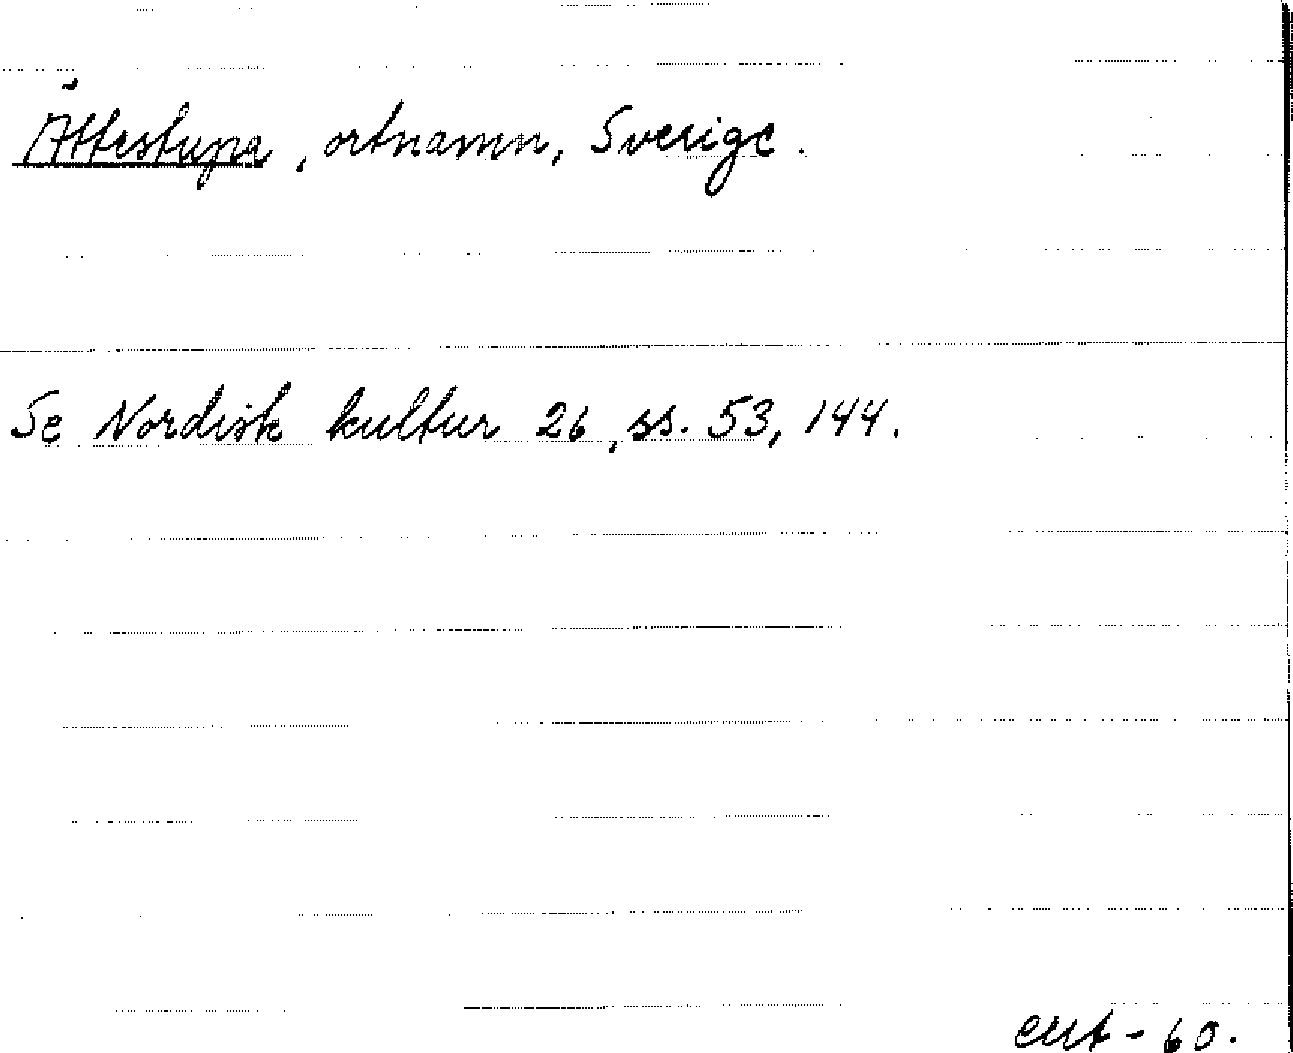 Ättestupa, ortnamn, Sverige.
Se Nordisk kultur 26, ss. 53, 144.
- 60.